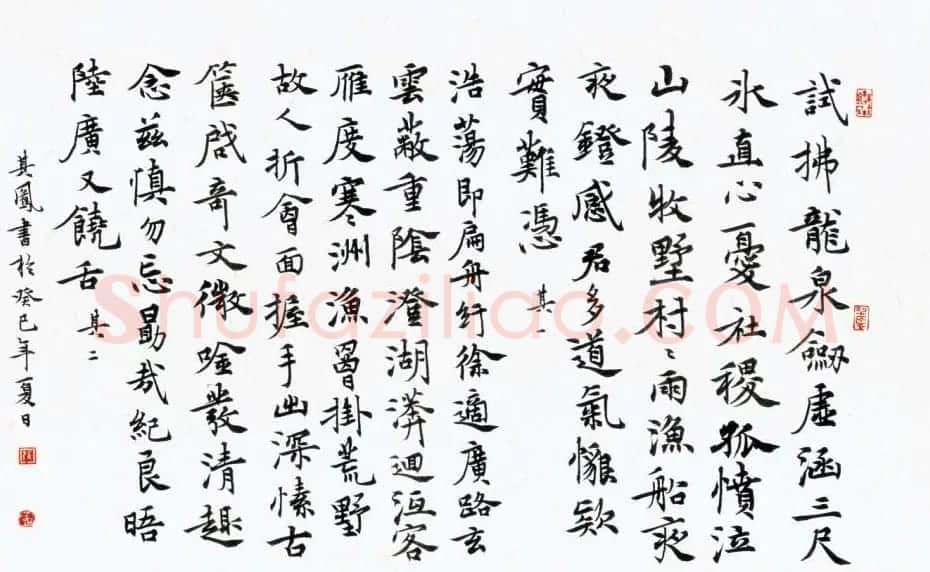 試拂龍泉劒虛涵三尺
氷直心憂社稷孤憤泣
山陵牧墅村〻雨漁船夜
夜鐙感君多道氣懶欵
實難憑 其一
浩蕩即扁舟行徐適廣路玄
雲蔽重陰澄湖漭迴沍客
雁度寒洲漁罾掛荒墅
故人折會面握手幽深愫古
篋啟奇文微唫叢清趣
念茲慎勿忘勗哉紀良晤
陸廣又饒舌 其二
其鳳書於癸巳年夏日
Shufaziliao.COM